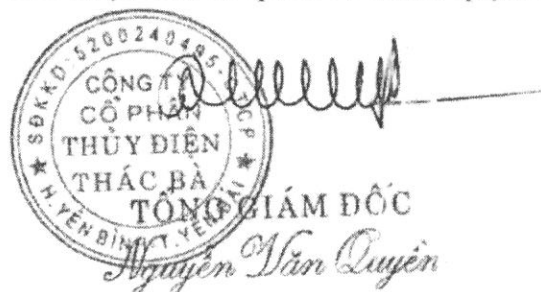 SĐKKD: 5200240495-
CTCP
CÔNG TY
CỔ PHẦN
THỦY ĐIỆN
THÁC BÀ
H. YÊN BÌNH - T. YÊN BÁI
TỔNG GIÁM ĐỐC
Nguyễn Văn Quyền